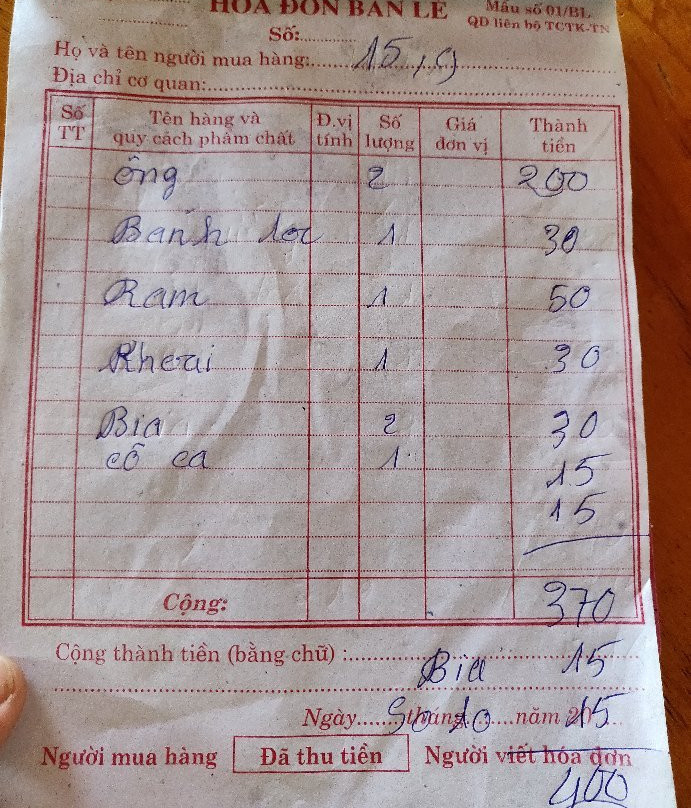 HÓA ĐƠN BÁN LẺ
Mẫu số 01/BL
QĐ liên bộ TCTK-TN
Số:
Họ và tên người mua hàng: 15,9
Địa chỉ cơ quan:
Số TT Tên hàng và quy cách phẩm chất Đ.vị tính Số lượng Giá đơn vị Thành tiền
ông 2 200
Banh loc 1 30
Ram 1 50
Khoai 1 30
Bia 2 30
cô ca 1 15
15
Cộng: 370
Cộng thành tiền (bằng chữ) :
Bia 15
Ngày tháng năm 20 15
Người mua hàng Đã thu tiền Người viết hóa đơn
400